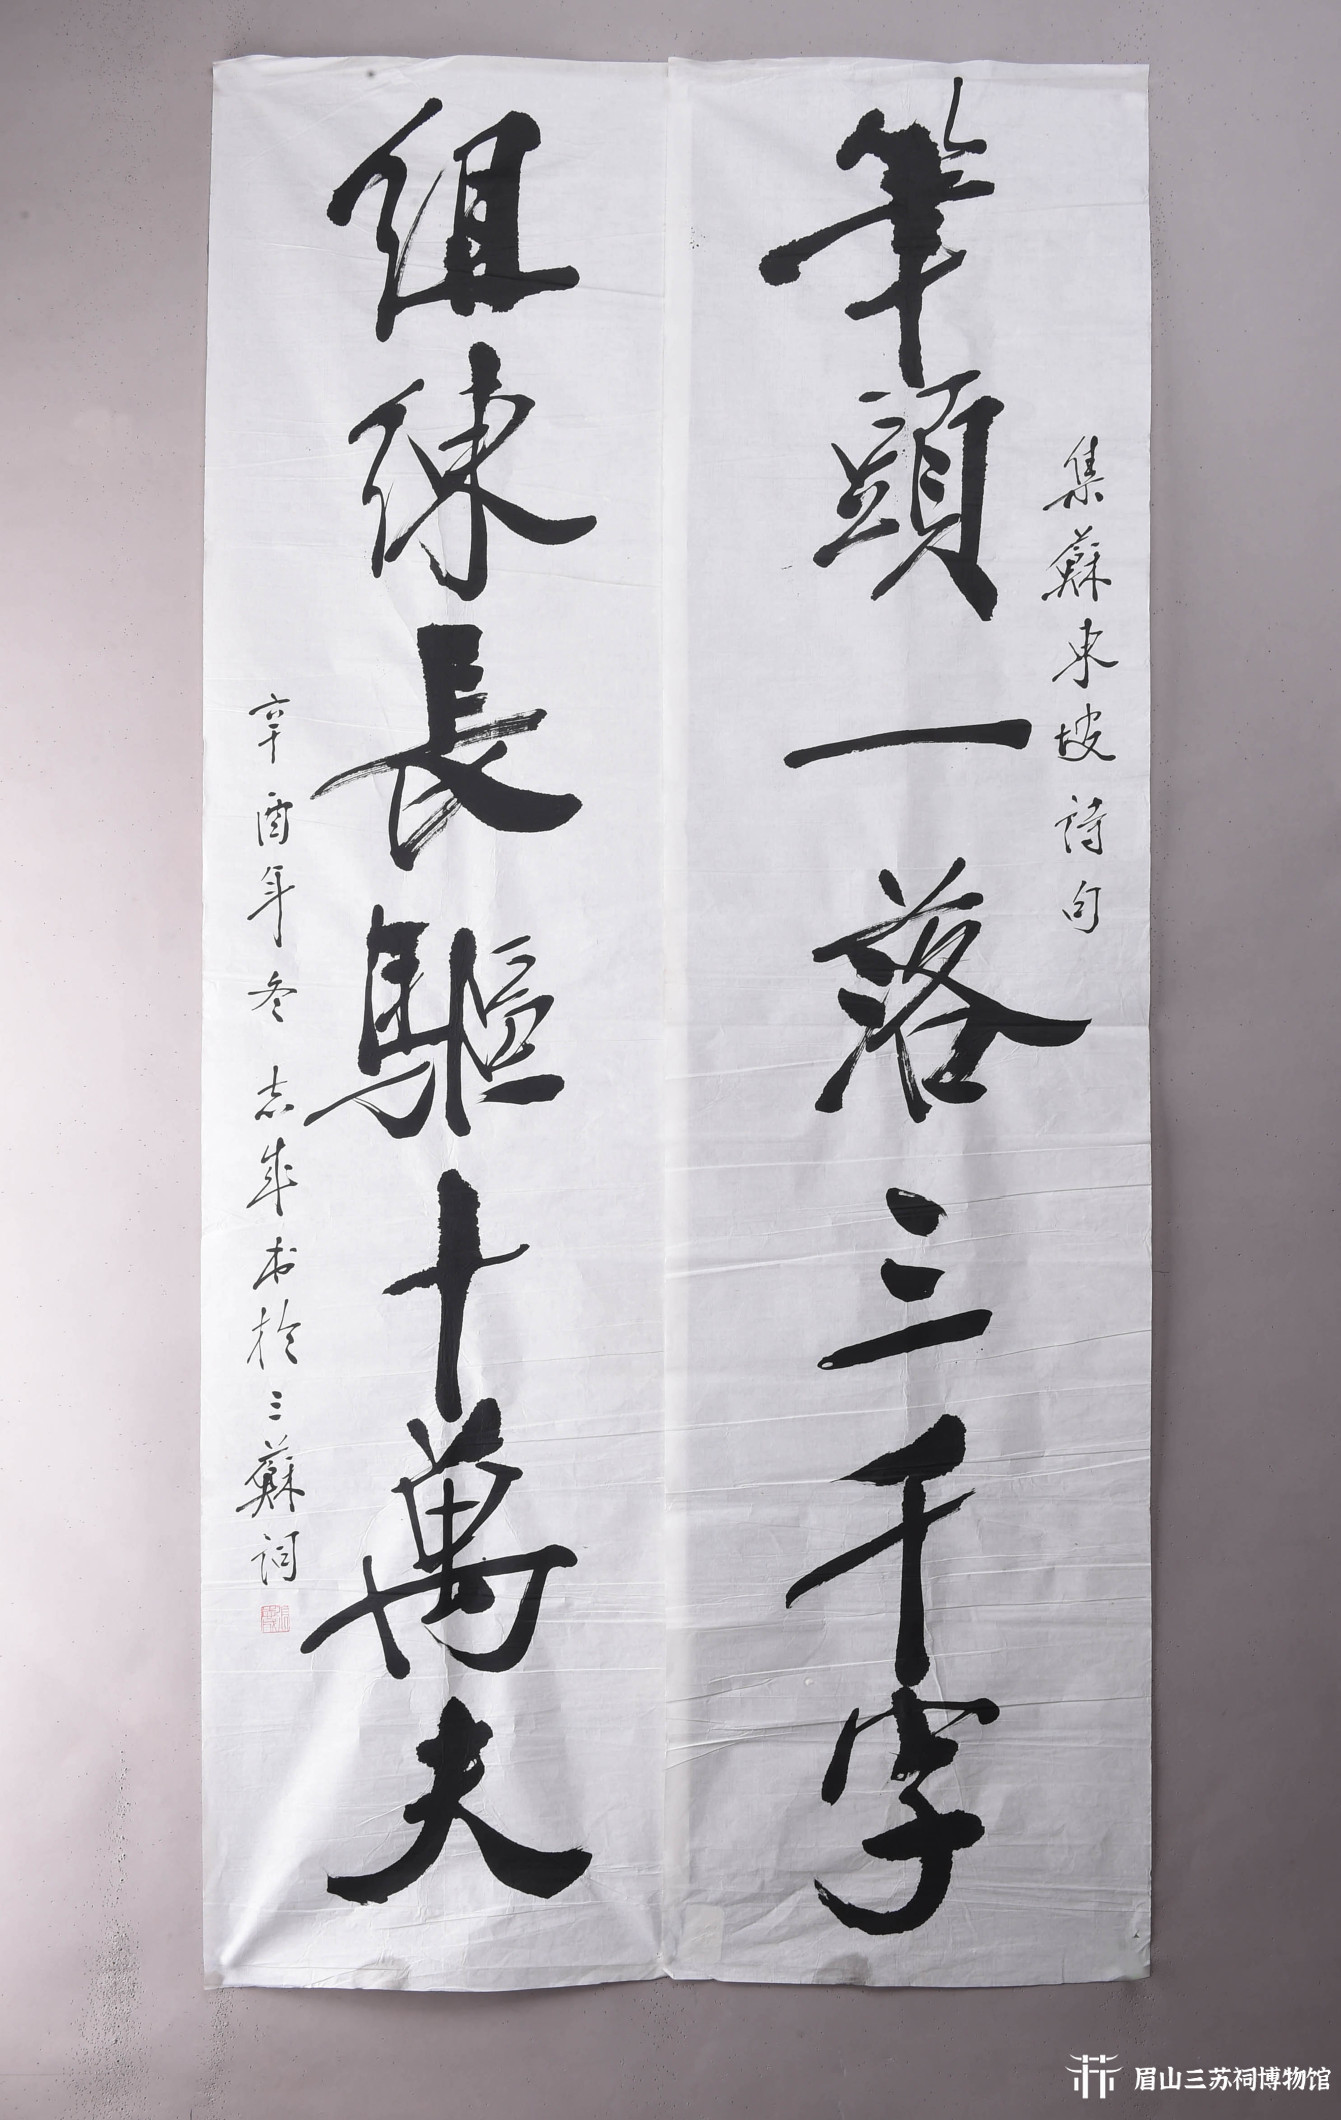 集蘇東坡詩句
筆頭一落三千字
組練長驅十萬夫
辛酉年冬 志成书於三蘇祠
眉山三苏祠博物馆